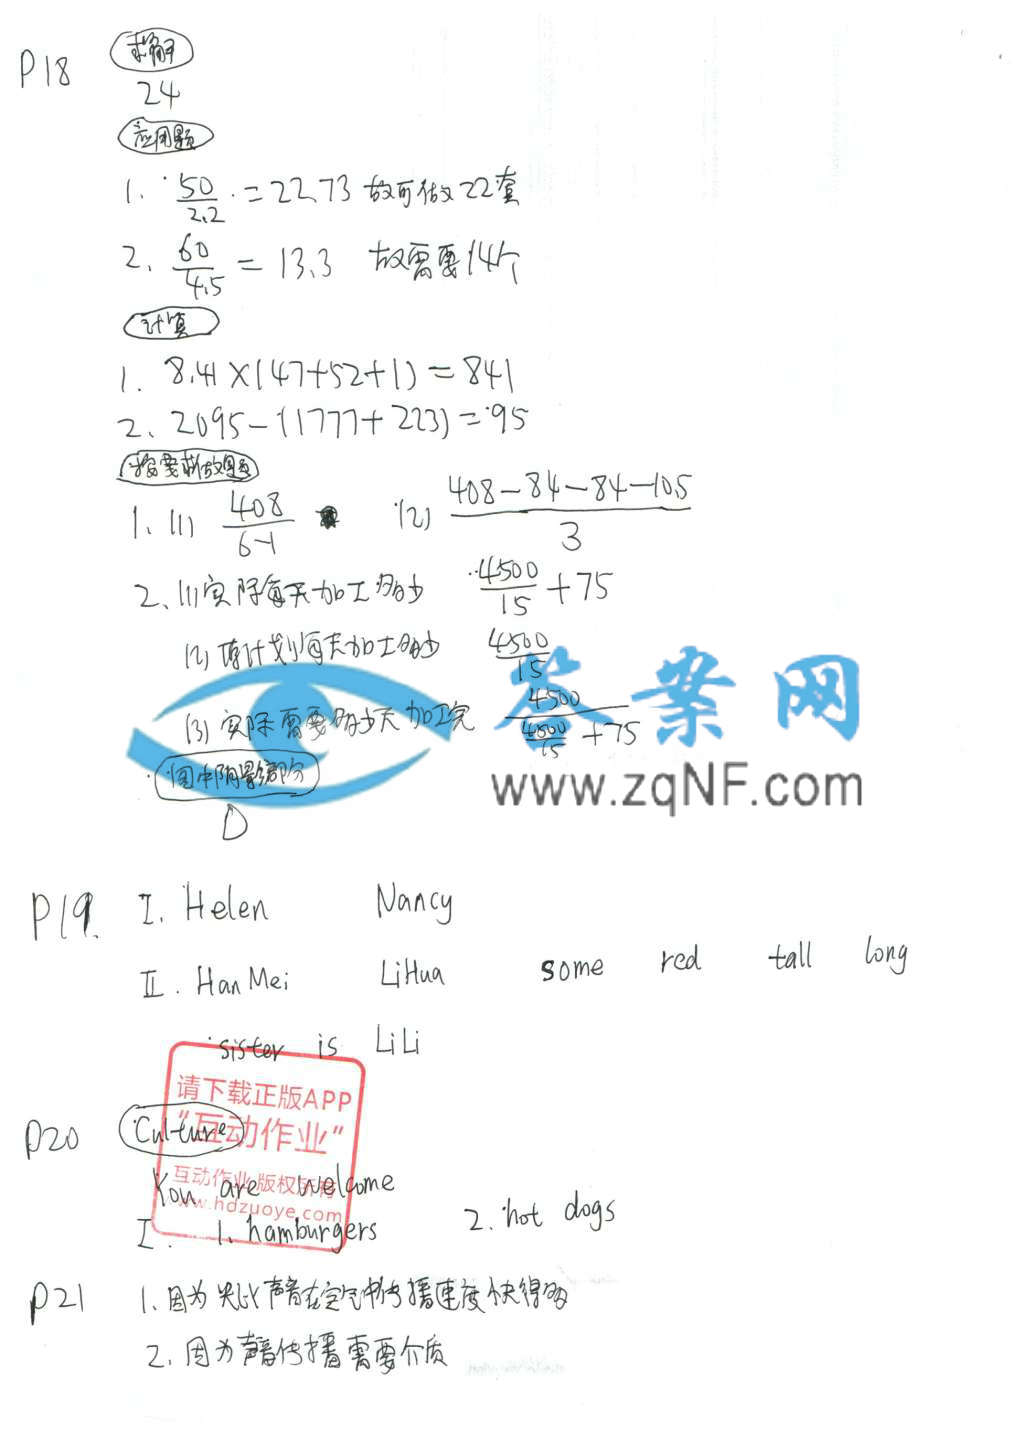 P18 求解
24
应用题
1. 50/2.2 = 22.73 故可做22套
2. 60/4.5 = 13.3 故需要14个
计算
1. 8.41×(47+52+1)=841
2. 2095-(1777+223)=95
按要求做题
1. (1) 408/6-1 (2) 408-84-84-105/3
2. (1)实际每天加工多少 4500/15+75
(2)原计划每天加工多少 4500/15
(3)实际需要多少天加工完 4500/(4500/15+75)
答案网
www.zqNF.com
图中阴影部分
D
P19. I. Helen Nancy
II. Han Mei LiHua some red tall long
sister is LiLi
请下载正版APP
"互动作业"
互动作业版权所有
www.hdzuoye.com
P20 Culture
You are welcome
I. 1. hamburgers 2. hot dogs
P21 1.因为光比声音在空气中传播速度快得多
2.因为声音传播需要介质